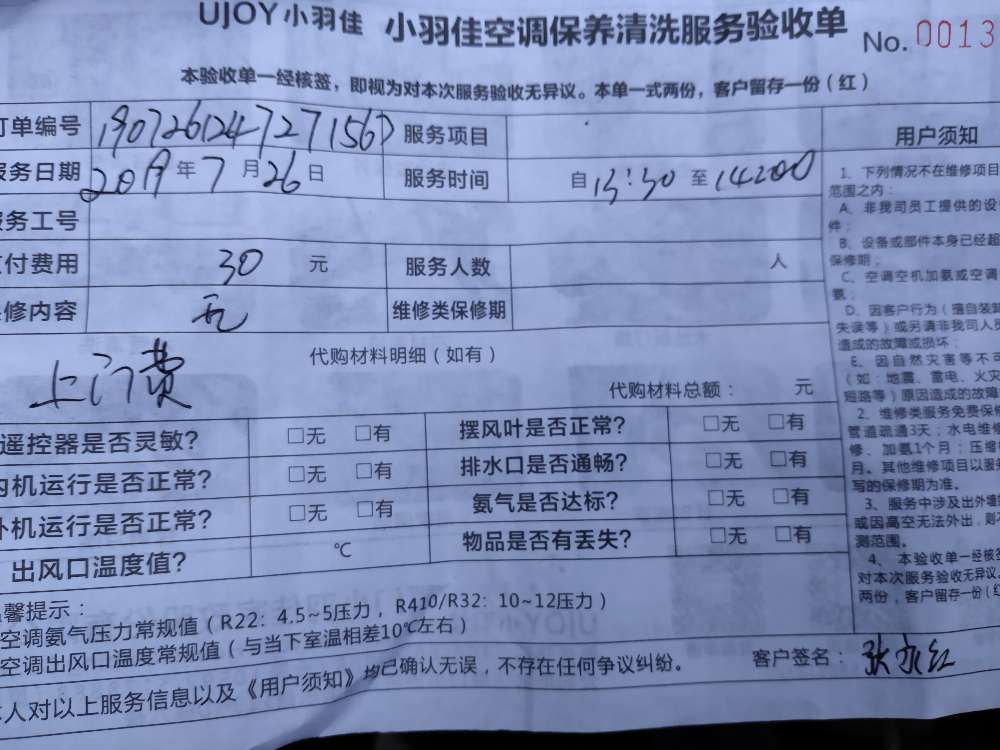 UJOY小羽佳 小羽佳空调保养清洗服务验收单 No. 0013
本验收单一经核签，即视为对本次服务验收无异议。本单一式两份，客户留存一份（红）
订单编号 190726124727156 服务项目
服务日期 2019年7月26日 服务时间 自13:30至14:00
服务工号
付费用 30 元 服务人数 人
修内容 无 维修类保修期
上门费 代购材料明细（如有）
代购材料总额： 元
遥控器是否灵敏? □无 □有 摆风叶是否正常? □无 □有
内机运行是否正常? □无 □有 排水口是否通畅? □无 □有
外机运行是否正常? □无 □有 氨气是否达标? □无 □有
出风口温度值? ℃ 物品是否有丢失? □无 □有
温馨提示：
空调氨气压力常规值（R22: 4.5~5压力，R410/R32: 10~12压力）
空调出风口温度常规值（与当下室温相差10℃左右）
本人对以上服务信息以及《用户须知》均已确认无误，不存在任何争议纠纷。 客户签名：张永红
用户须知
1、下列情况不在维修项目
范围之内：
A、非我司员工提供的设
件；
B、设备或部件本身已经超
保修期；
C、空调空机加氨或空调
氨；
D、因客户行为（擅自装卸
失误等）或另请非我司人员
造成的故障或损坏；
E、因自然灾害等不可
（如：地震、雷电、火灾
短路等）原因造成的故障
2、维修类服务免费保修
管道疏通3天；水电维修
修、加氨1个月；压缩
月。其他维修项目以服务
写的保修期为准。
3、服务中涉及出外墙
或因高空无法外出，则
测范围。
4、本验收单一经核签
对本次服务验收无异议。
两份，客户留存一份（红